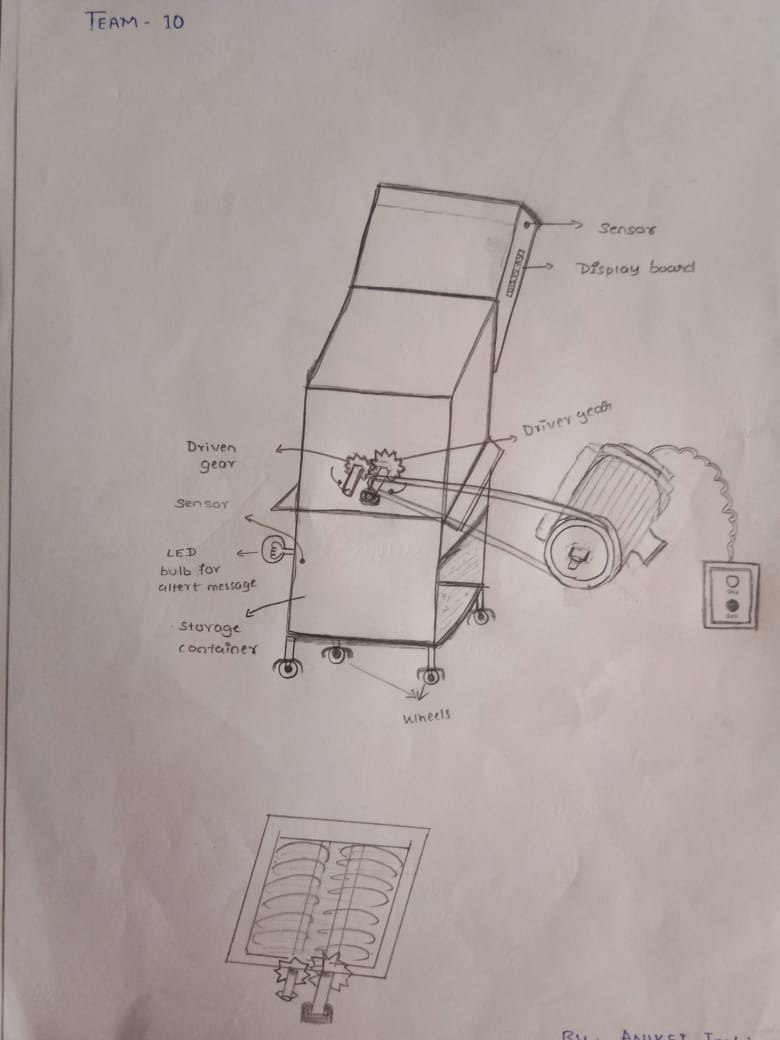 TEAM - 10
Sensor
DISPLAY
Display board
Driver gear
Driven
gear
Sensor
LED
bulb for
altert message
Storage
container
Wheels
BY: ANIKET